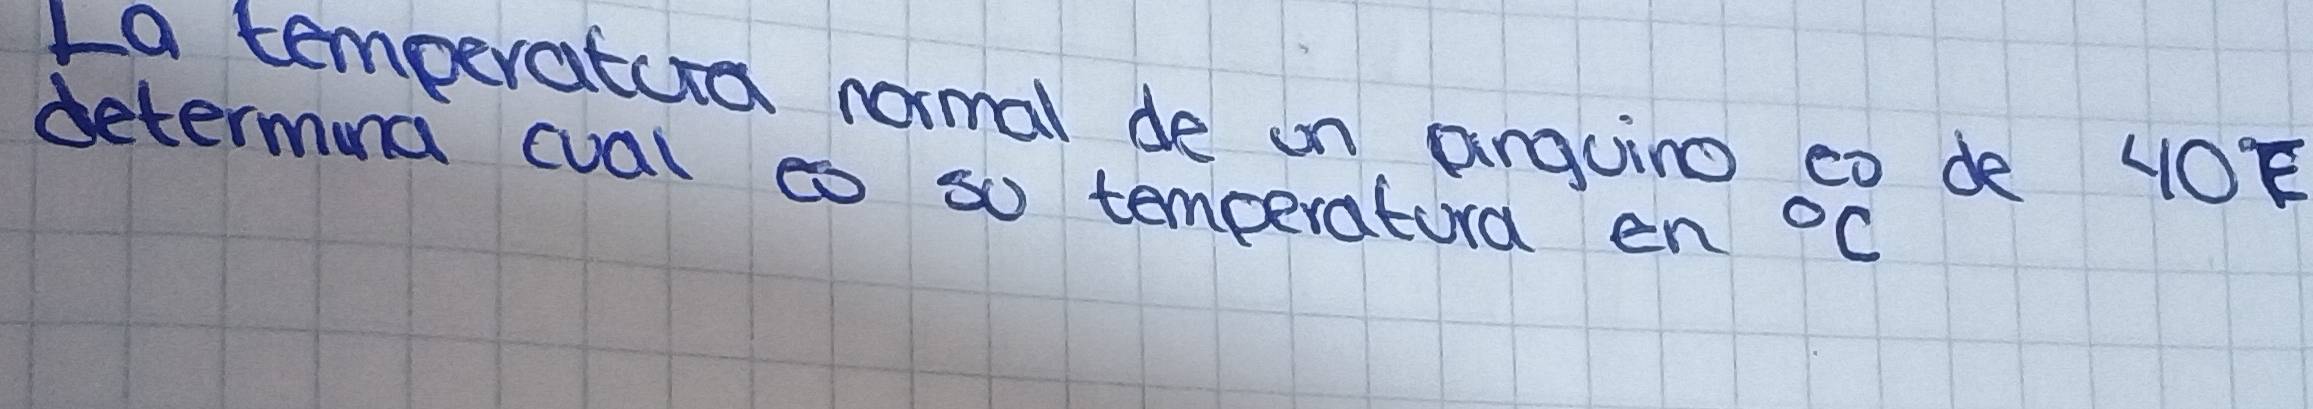 La temperatura normal de un pinguino es de 40°F
determina cual es su temperatura en °C